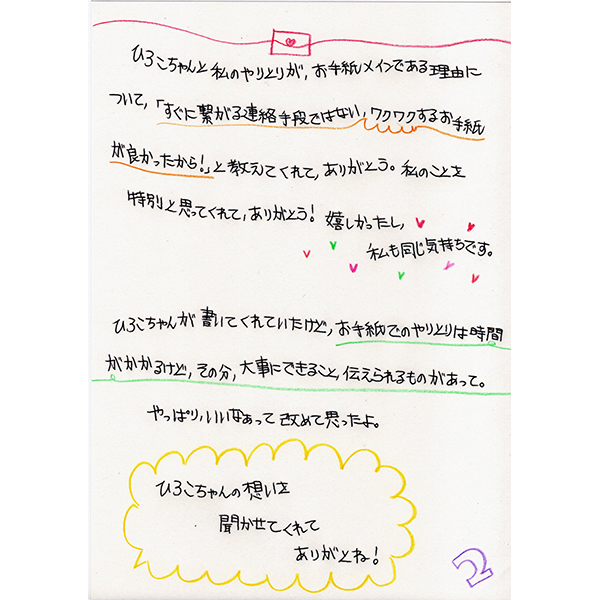 ひろこちゃんと私のやりとりが、お手紙メインである理由に
ついて、「すぐに繋がる連絡手段ではない、ワクワクするお手紙
が良かったから!」と教えてくれて、ありがとう。私のことを
特別と思ってくれて、ありがとう!嬉しかったし、
私も同じ気持ちです。
ひろこちゃんが書いてくれていたけど、お手紙でのやりとりは時間
がかかるけど、その分、大事にできること、伝えられるものがあって。
やっぱり、いいなぁって改めて思ったよ。
ひろこちゃんの想いを
聞かせてくれて
ありがとね!
2